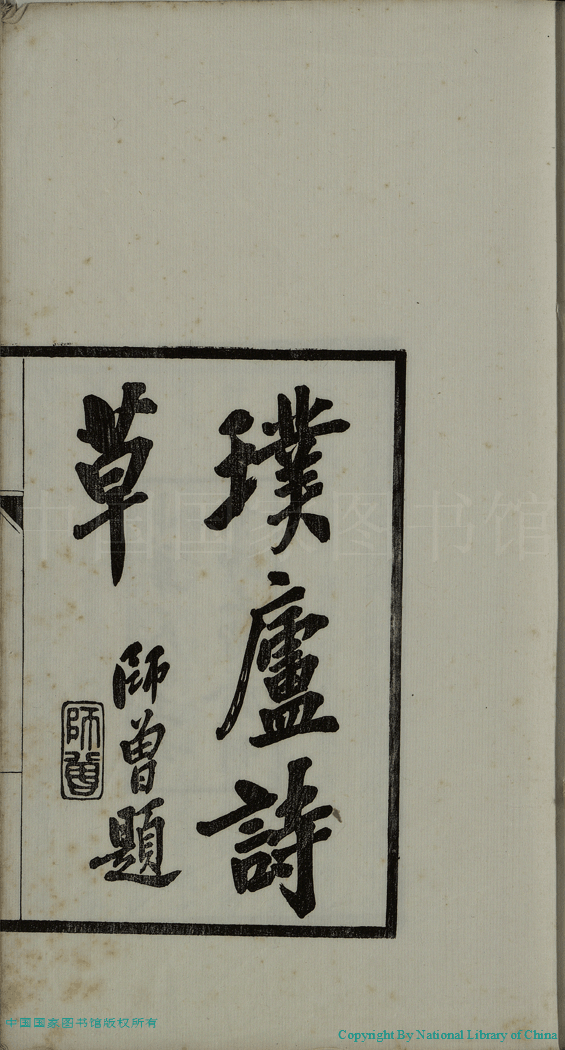 璞廬詩
草
師曾題
師曾
中国国家图书馆
中国国家图书馆版权所有
Copyright By National Library of China